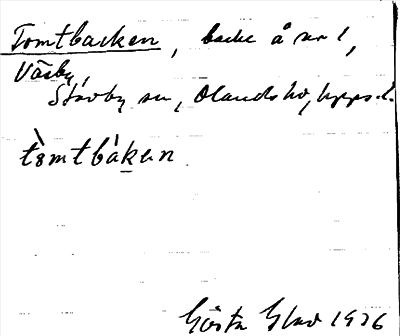 Tomtbacken, backe å nr 1,
Väsby,
Stavby sn, Olands hd, Upps. l.
tòmtbáken
Gösta Blad 1936